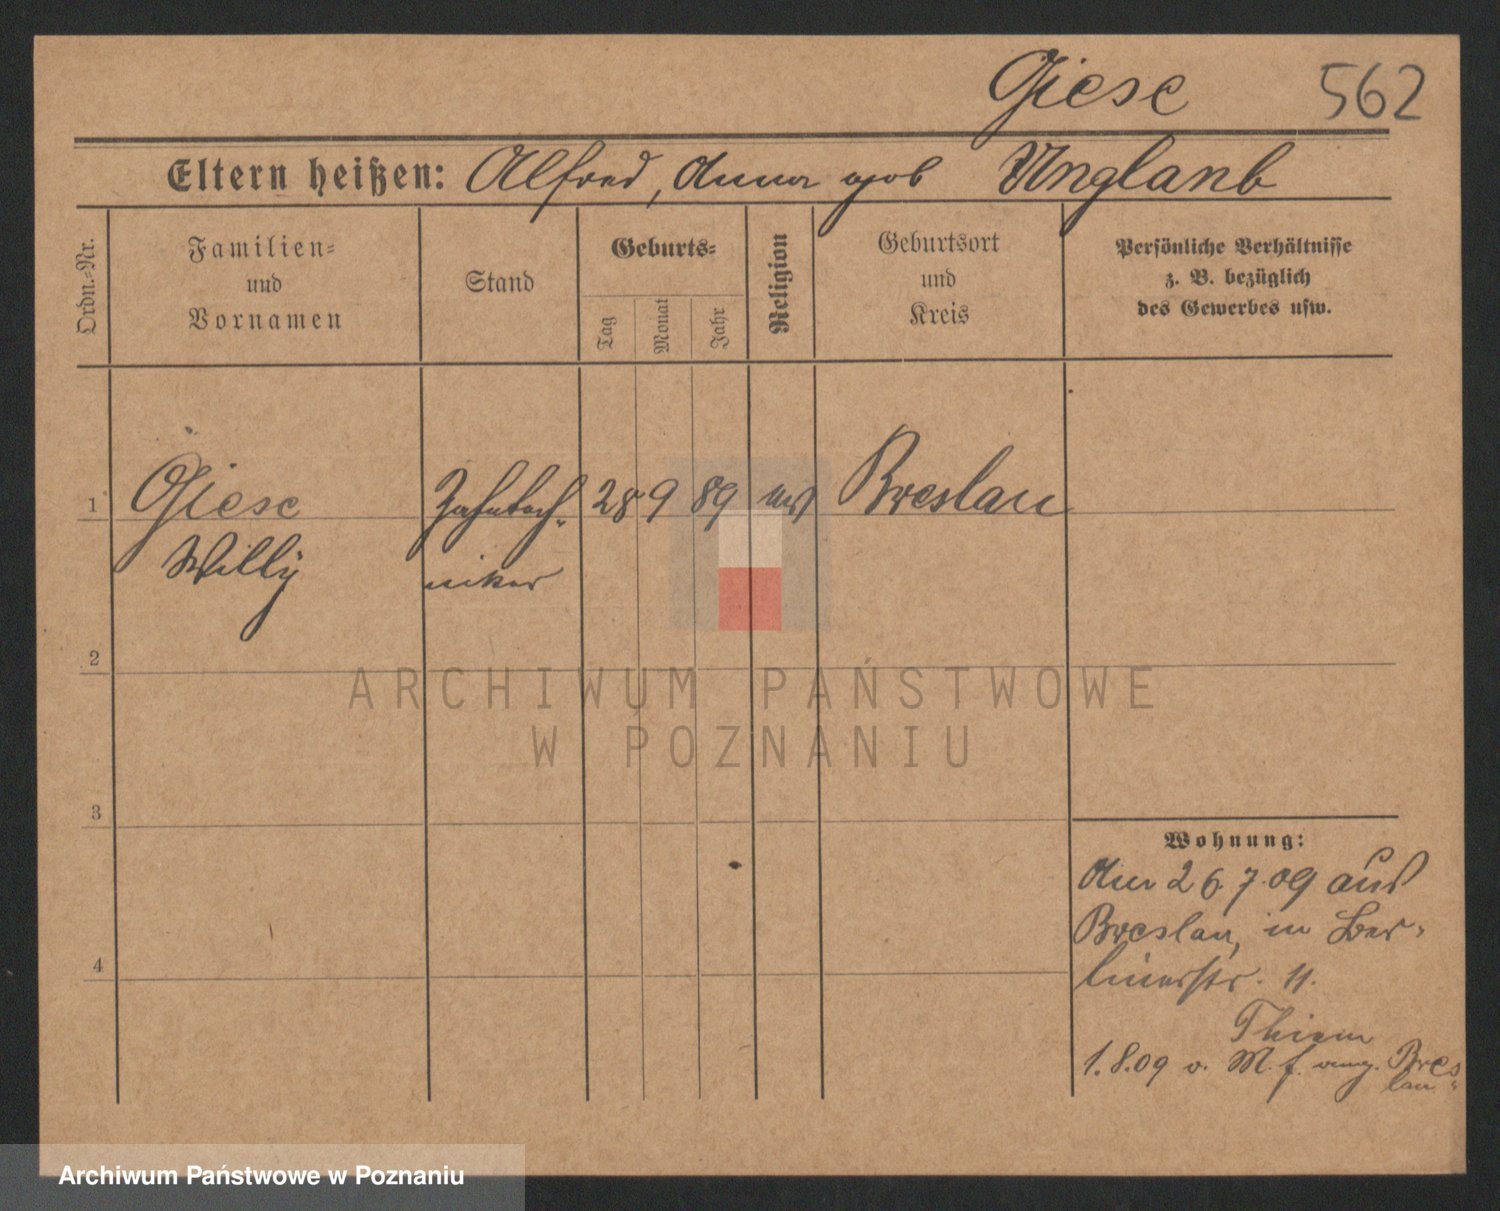 Giese 562
Eltern heißen: Alfred, Anna geb Unglaub
Ordn.=Nr.
Familien=
und
Vornamen
Stand
Geburts=
Tag
Monat
Jahr
Religion
Geburtsort
und
Kreis
Persönliche Verhältnisse
z. B. bezüglich
des Gewerbes usw.
1 Giese Zahntech= 28 9 89 Breslau
Willy niker
2
ARCHIWUM PAŃSTWOWE
W POZNANIU
3
Wohnung:
26.7.09 aus
Breslau, in Ber=
linerstr. 11.
4
Thiem
1.8.09 v. M. f. Bres=
lau
Archiwum Państwowe w Poznaniu